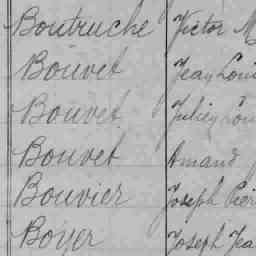 Boutruche Victor M
Bouvet Jean Loui
Bouvet Julien Lou
Bouvet Amand
Bouvier Joseph Pier
Boyer Joseph Jea